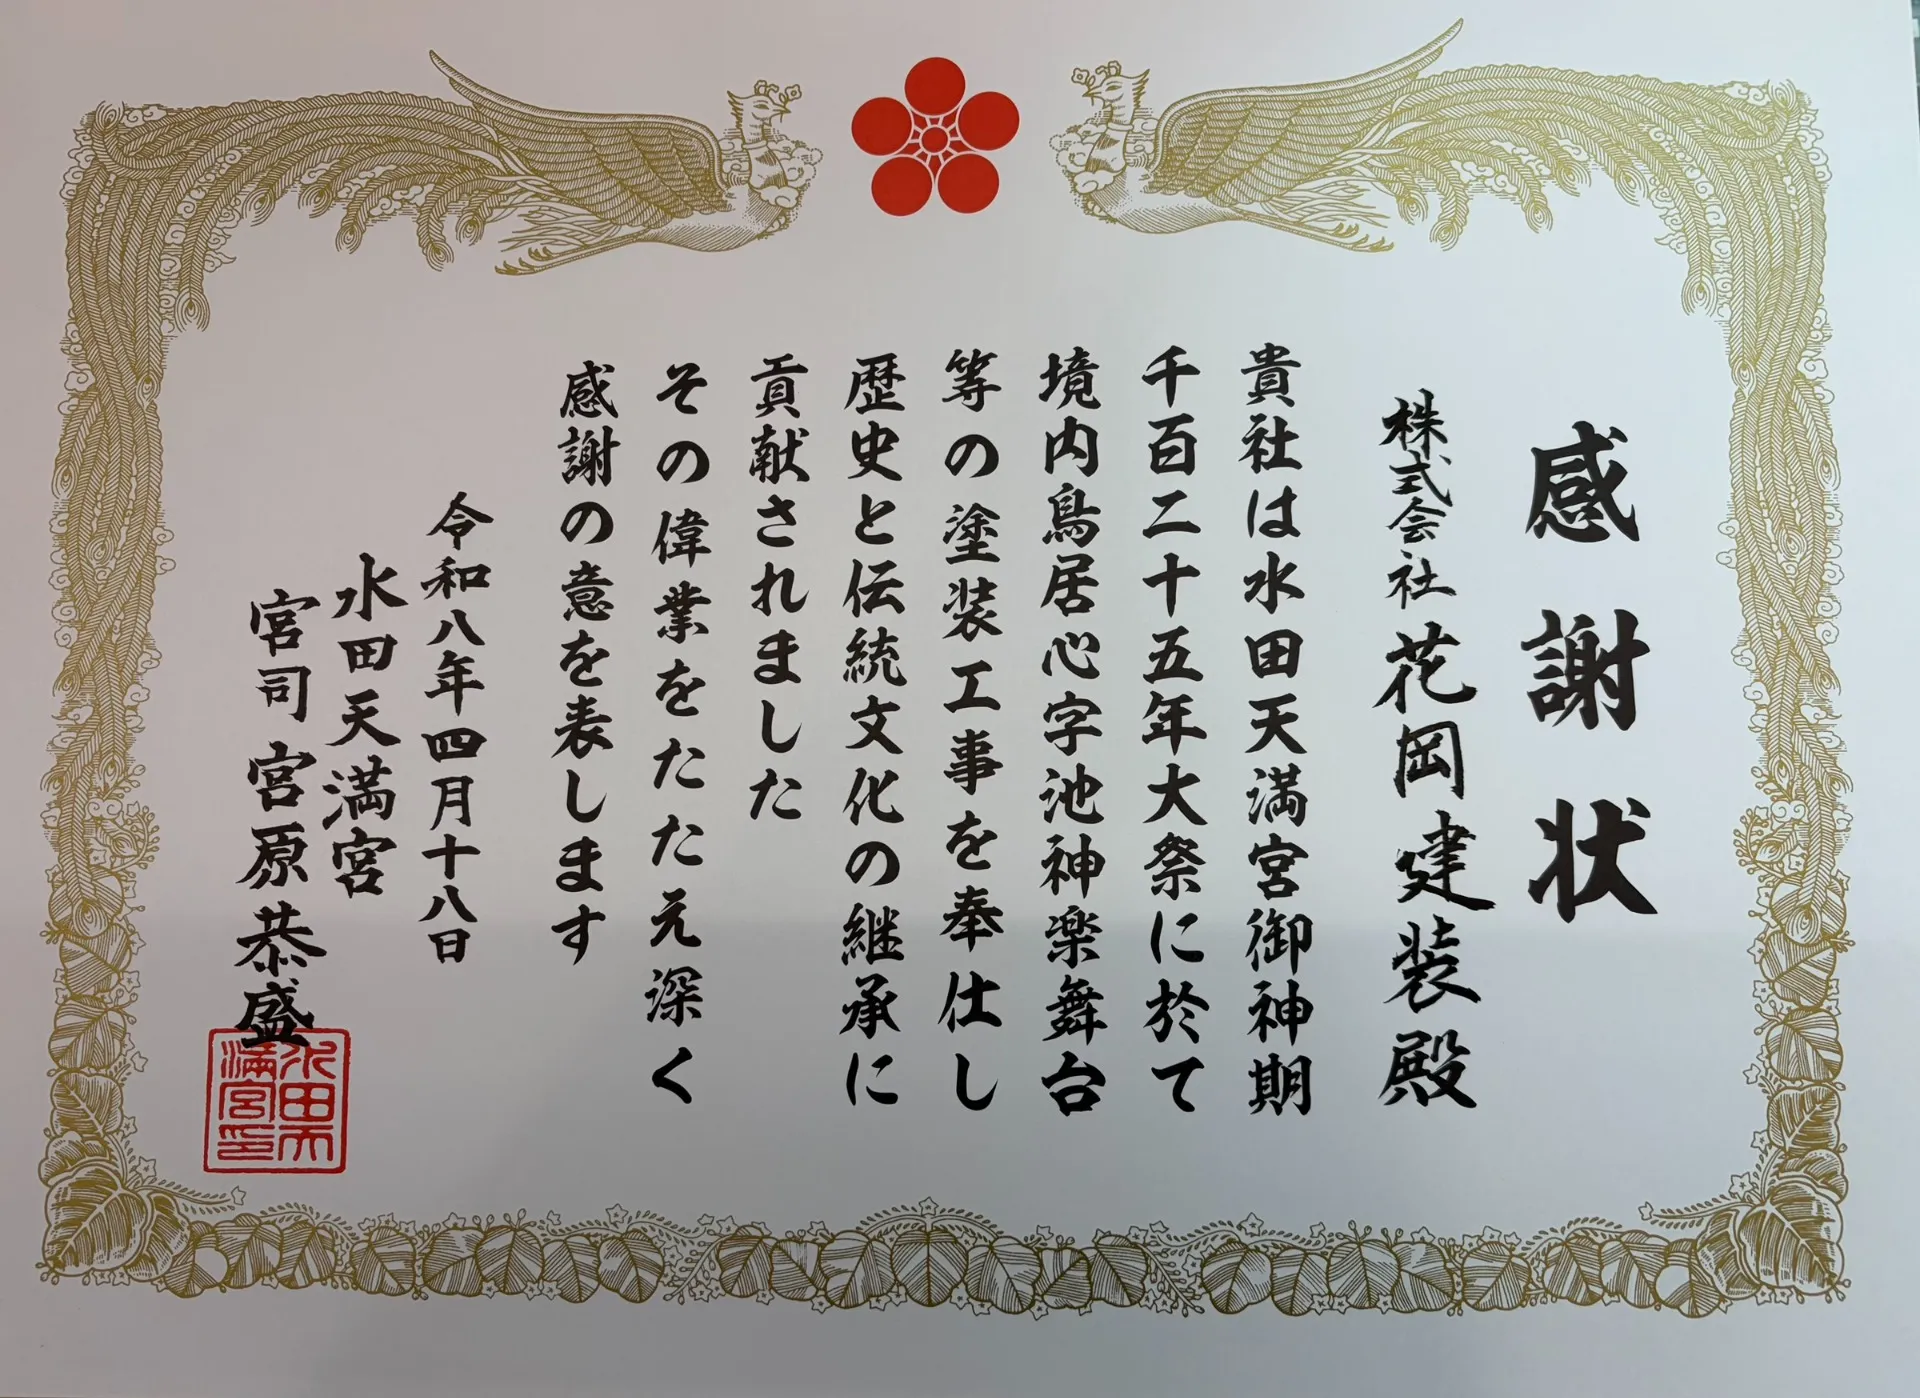 感謝状
株式会社花岡建装殿
貴社は水田天満宮御神期
千百二十五年大祭に於て
境内鳥居心字池神楽舞台
等の塗装工事を奉仕し
歴史と伝統文化の継承に
貢献されました
その偉業をたたえ深く
感謝の意を表します
令和八年四月十八日
水田天満宮
宮司宮原恭盛
水田天
満宮印